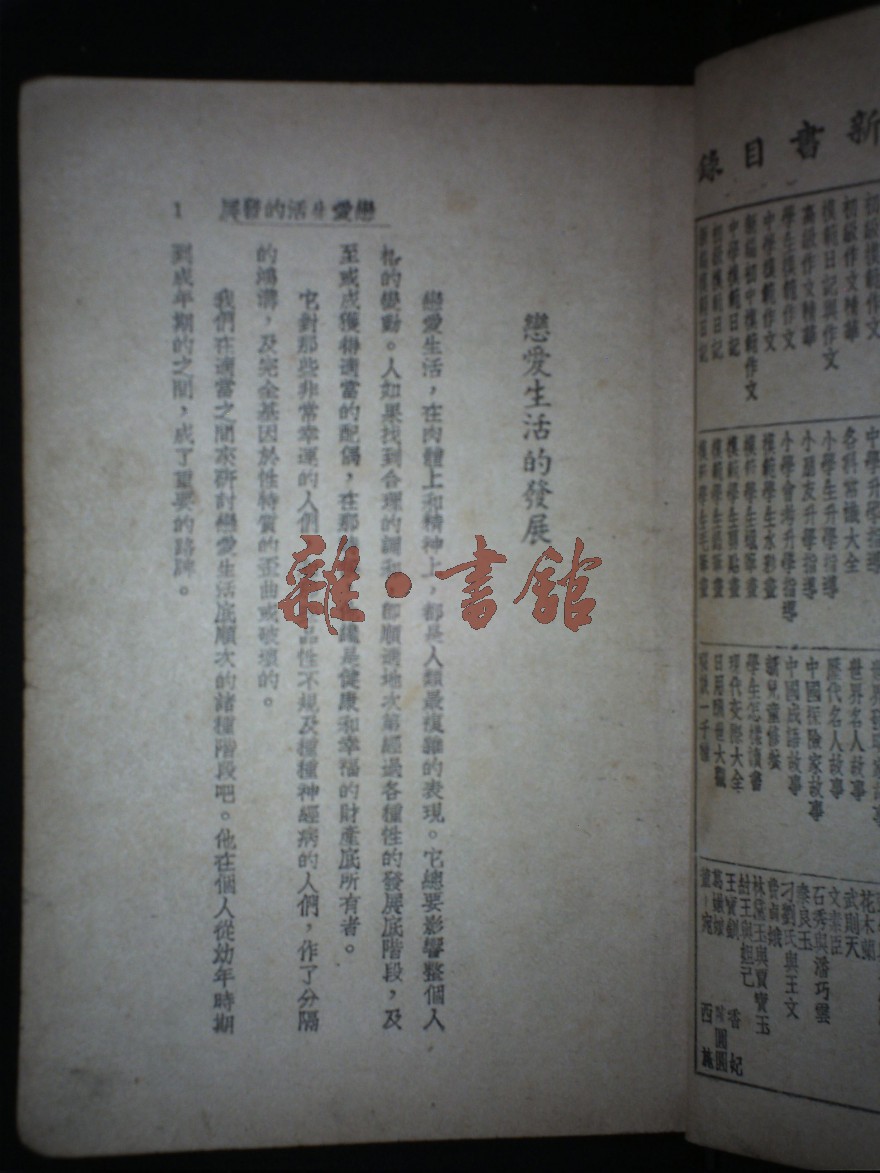 新書目錄
初級模範作文
初級作文精華
模範日記與作文
高級作文精華
學生模範作文
中學模範作文
新編初中模範作文
中學模範日記
初級模範日記
模範日記
中學升學指導
各科常識大全
小學生升學指導
小朋友升學指導
小學會考升學指導
模範學生水彩畫
模範學生蠟筆畫
模範學生鉛筆畫
世界名人故事
歷代名人故事
中國探險家故事
中國成語故事
學生怎樣讀書
現代交際大全
花木蘭
武則天
文素臣
石秀與潘巧雲
秦良玉
刁劉氏與王文
費貞娥
林黛玉與賈寶玉
紂王與妲己
王寶釧 香妃
葛嫩娘 陳圓圓
董小宛 西施
戀愛生活的發展
戀愛生活,在肉體上和精神上,都是人類最複雜的表現。它總要影響整個人
格的變動。人如果找到合理的調和,都順適地次第經過各種性的發展底階段,及
至或成獲得適當的配偶,在那 是健康和幸福的財產底所有者。
它對那些非常幸運的人們 出性不規及種種神經病的人們,作了分隔
的鴻溝,及完全基因於性特質的歪曲或破壞的。
我們在適當之間來研討戀愛生活底順次的諸種階段吧。他在個人從幼年時期
到成年期的之間,成了重要的路牌。
戀愛生活的發展 1
雜·書館